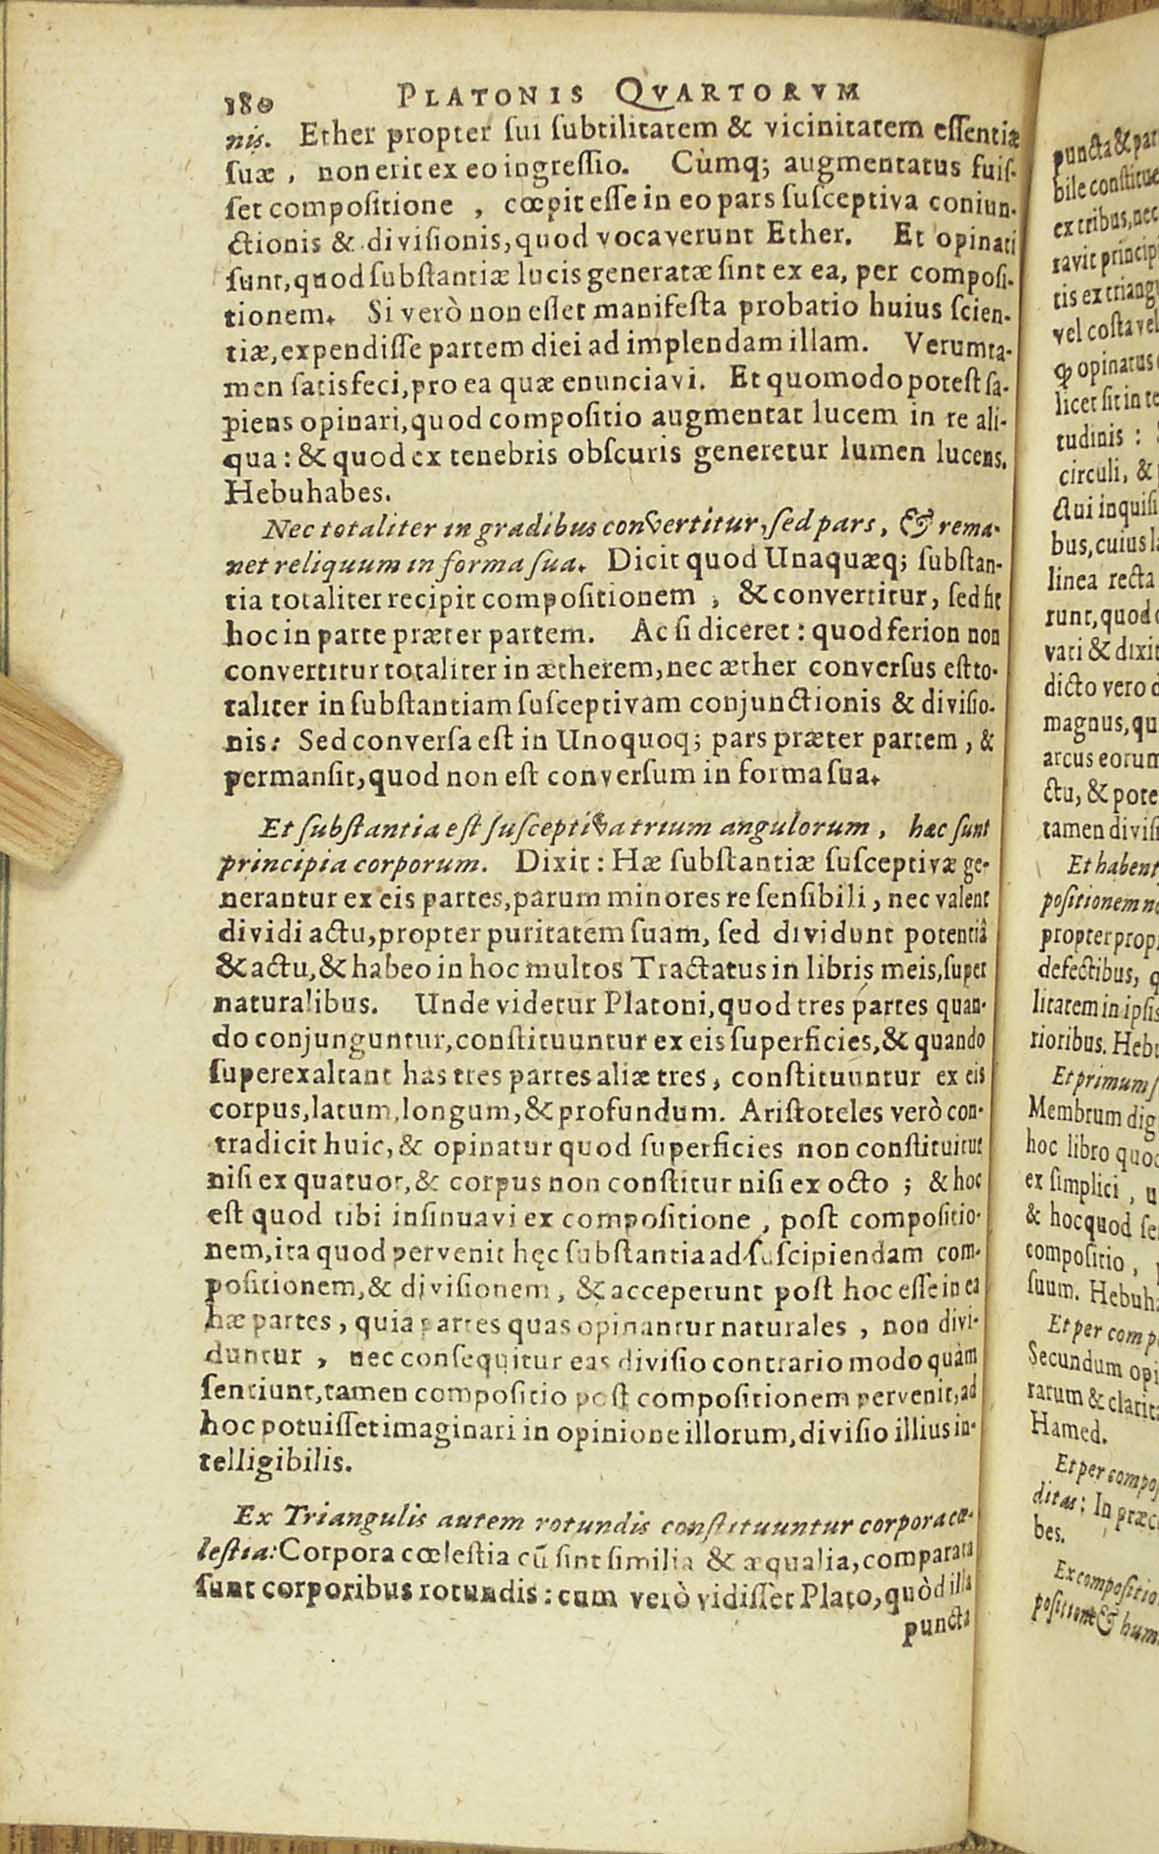 180 PLATONIS QVARTORVM
nis. Ether propter sui subtilitatem & vicinitatem essentiæ
suæ, non erit ex eo ingressio. Cùmq; augmentatus fuis-
set compositione, cœpit esse in eo pars susceptiva coniun-
ctionis & divisionis, quod vocaverunt Ether. Et opinati
sunt, quod substantiæ lucis generatæ sint ex ea, per composi-
tionem. Si verò non esset manifesta probatio huius scien-
tiæ, expendisse partem diei ad implendam illam. Verumta-
men satisfeci, pro ea quæ enunciavi. Et quomodo potest sa-
piens opinari, quod compositio augmentat lucem in re ali-
qua: & quod ex tenebris obscuris generetur lumen lucens.
Hebuhabes.
Nec totaliter in gradibus convertitur, sed pars, & rema-
net reliquum in forma sua. Dicit quod Unaquæq; substan-
tia totaliter recipit compositionem, & convertitur, sed fit
hoc in parte præter partem. Ac si diceret: quod ferion non
convertitur totaliter in ætherem, nec æther conversus est to-
taliter in substantiam susceptivam conjunctionis & divisio-
nis: Sed conversa est in Unoquoq; pars præter partem, &
permansit, quod non est conversum in forma sua.
Et substantia est susceptiva trium angulorum, hæc sunt
principia corporum. Dixit: Hæ substantiæ susceptivæ ge-
nerantur ex eis partes, parum minores re sensibili, nec valent
dividi actu, propter puritatem suam, sed dividunt potentiâ
& actu, & habeo in hoc multos Tractatus in libris meis, super
naturalibus. Unde videtur Platoni, quod tres partes quan-
do conjunguntur, constituuntur ex eis superficies, & quando
superexaltant has tres partes aliæ tres, constituuntur ex eis
corpus, latum, longum, & profundum. Aristoteles verò con-
tradicit huic, & opinatur quod superficies non constituitur
nisi ex quatuor, & corpus non constitur nisi ex octo; & hoc
est quod tibi insinuavi ex compositione, post compositio-
nem, ita quod pervenit hęc substantia ad suscipiendam com-
positionem, & divisionem, & acceperunt post hoc esse in ea
hæ partes, quia partes quas opinantur naturales, non divi-
duntur, nec consequitur eas divisio contrario modo quàm
sentiunt, tamen compositio post compositionem pervenit, ad
hoc potuisset imaginari in opinione illorum, divisio illius in-
telligibilis.
Ex Triangulis autem rotundis constituuntur corpora cœ-
lestia: Corpora cœlestia cũ sint similia & æqualia, comparata
sunt corporibus rotundis: cum verò vidisset Plato, quòd illa
puncta
puncta & par
bile constitue
ex tribus, nec
ravit principi
tis ex triang
vel costa vel
opinatus
licet sit in te
tudinis:
circuli, &
ctui inquisi
bus, cuius la
linea recta
runt, quod
vati & dixit
dicto vero
magnus, qu
arcus eorum
ctu, & pote
tamen divisi
Et habent
positionem
propter prop
defectibus, q
litatem in ipsis
rioribus. Hebu
Et primum
Membrum dig
hoc libro quod
ex simplici, u
& hoc quod se
compositio,
suum. Hebuha
Et per comp
Secundum opi
ratum & clarita
Hamed.
Et per compos
ditas: In præc
bes.
Ex compositio
positione & hum